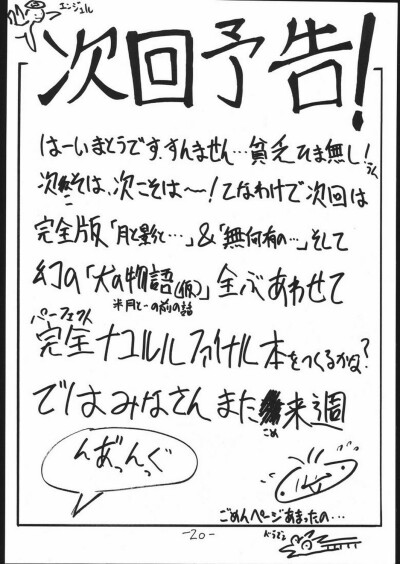 エンジェル
次回予告!
はーいまとうです、すんません…貧乏ひま無し!
次こそは、次こそは〜!てなわけで次回は
完全版「月と影と…」&「無何有の…」そして
幻の「犬の物語(仮)」全ぶあわせて
※月と…の前の話
パーフェクト
完全ナコルルファイナル本をつくるかな?
ではみなさんまた来週
こめ
んがっんっぐ
ごめんページあまったの…
-20-